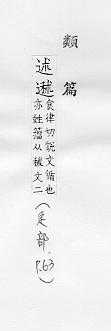 類篇
述𧗟食律切說文循也
亦姓籀从秫文二
(辵部.P.63)